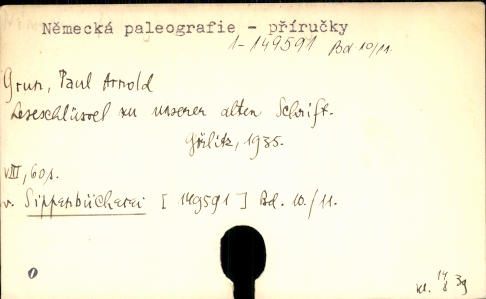 Německá paleografie - příručky
1-149591 Bd 10/11.
Grun, Paul Arnold
Leseschlüssel zu unserer alten Schrift.
Görlitz, 1935.
VIII, 60 s.
v. Sippenbücherei [ 149591 ] Bd. 10./11.
0
kl. 14/8 39